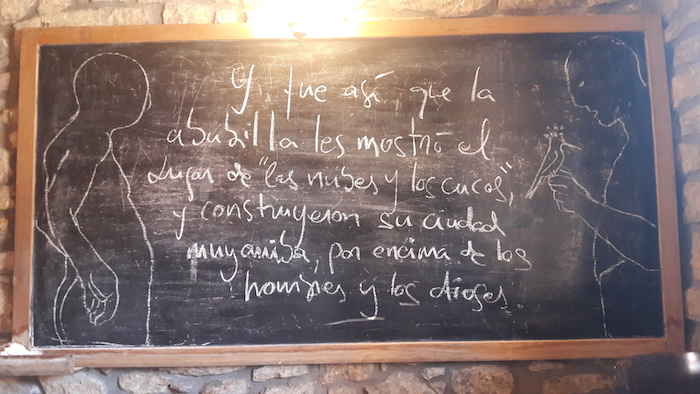 Y fue así, que la
abubilla les mostró el
lugar de "las nubes y los cucos",
y construyeron su ciudad
muy arriba, por encima de los
hombres y los dioses.